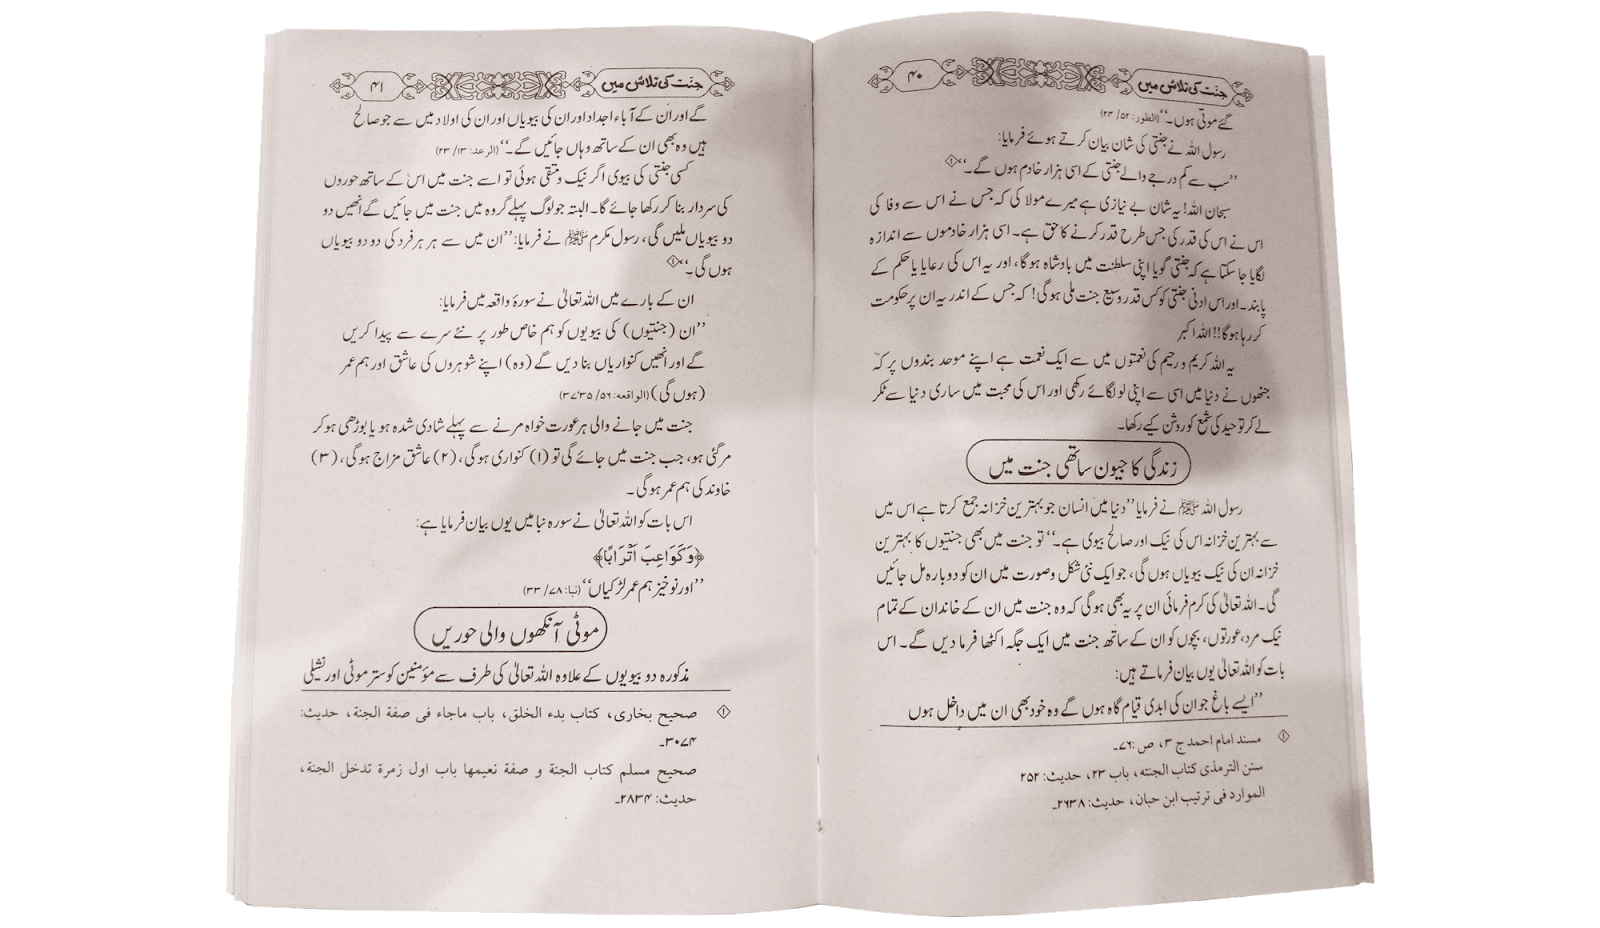 جنت کی تلاش میں
۴۰
گئے موتی ہوں۔‘‘ (الطور: ۵۲/ ۲۴)
رسول اللہ نے جنتی کی شان بیان کرتے ہوئے فرمایا:
’’سب سے کم درجے والے جنتی کے اسی ہزار خادم ہوں گے۔‘‘ ۱
سبحان اللہ! یہ شان بے نیازی ہے میرے مولا کی کہ جس نے اس سے وفا کی
اس نے اس کی قدر کی جس طرح قدر کرنے کا حق ہے۔ اسی ہزار خادموں سے اندازہ
لگایا جا سکتا ہے کہ جنتی گویا اپنی سلطنت میں بادشاہ ہوگا، اور یہ اس کی رعایا یا حکم کے
پابند۔ اور اس ادنی جنتی کو کس قدر وسیع جنت ملی ہوگی! کہ جس کے اندر یہ ان پر حکومت
کر رہا ہوگا!! اللہ اکبر
یہ اللہ کریم و رحیم کی نعمتوں میں سے ایک نعمت ہے اپنے موحد بندوں پر کہ
جنھوں نے دنیا میں اسی سے اپنی لو لگائے رکھی اور اس کی محبت میں ساری دنیا سے ٹکر
لے کر توحید کی شمع کو روشن کیے رکھا۔
زندگی کا جیون ساتھی جنت میں
رسول اللہ ﷺ نے فرمایا ’’دنیا میں انسان جو بہترین خزانہ جمع کرتا ہے اس میں
سے بہترین خزانہ اس کی نیک اور صالح بیوی ہے۔‘‘ تو جنت میں بھی جنتیوں کا بہترین
خزانہ ان کی نیک بیویاں ہوں گی، جو ایک نئی شکل وصورت میں ان کو دوبارہ مل جائیں
گی۔ اللہ تعالیٰ کی کرم فرمائی ان پر یہ بھی ہوگی کہ وہ جنت میں ان کے خاندان کے تمام
نیک مرد، عورتوں، بچوں کو ان کے ساتھ جنت میں ایک جگہ اکٹھا فرما دیں گے۔ اس
بات کو اللہ تعالیٰ یوں بیان فرماتے ہیں:
’’ایسے باغ جو ان کی ابدی قیام گاہ ہوں گے وہ خود بھی ان میں داخل ہوں
۱ مسند امام احمد ج ۳، ص :۷۶۔
سنن الترمذی کتاب الجنته، باب ۲۳، حدیث: ۲۵۲
الموارد فی ترتیب ابن حبان، حدیث: ۲۶۳۸۔
جنت کی تلاش میں
۴۱
گے اور ان کے آباء اجداد اور ان کی بیویاں اور ان کی اولاد میں سے جو صالح
ہیں وہ بھی ان کے ساتھ وہاں جائیں گے۔‘‘ (الرعد: ۱۳/ ۲۳)
کسی جنتی کی بیوی اگر نیک و متقی ہوئی تو اسے جنت میں اس کے ساتھ حوروں
کی سردار بنا کر رکھا جائے گا۔ البتہ جو لوگ پہلے گروہ میں جنت میں جائیں گے انھیں دو
دو بیویاں ملیں گی، رسول مکرم ﷺ نے فرمایا: ’’ان میں سے ہر ہر فرد کی دو دو بیویاں
ہوں گی۔‘‘ ۱
ان کے بارے میں اللہ تعالیٰ نے سورۂ واقعہ میں فرمایا:
’’ان (جنتیوں) کی بیویوں کو ہم خاص طور پر نئے سرے سے پیدا کریں
گے اور انھیں کنواریاں بنا دیں گے (وہ) اپنے شوہروں کی عاشق اور ہم عمر
(ہوں گی) (الواقعہ: ۵۶/ ۳۵'۳۷)
جنت میں جانے والی ہر عورت خواہ مرنے سے پہلے شادی شدہ ہو یا بوڑھی ہوکر
مرگئی ہو، جب جنت میں جائے گی تو (۱) کنواری ہوگی، (۲) عاشق مزاج ہوگی، (۳)
خاوند کی ہم عمر ہوگی۔
اس بات کو اللہ تعالیٰ نے سورہ نبا میں یوں بیان فرمایا ہے:
﴿وَكَوَاعِبَ أَتْرَابًا﴾
’’اور نوخیز ہم عمر لڑکیاں‘‘ (نبا: ۷۸/ ۳۳)
موٹی آنکھوں والی حوریں
مذکورہ دو بیویوں کے علاوہ اللہ تعالیٰ کی طرف سے مؤمنین کو ستر موٹی اور نشیلی
۱ صحیح بخاری، کتاب بدء الخلق، باب ماجاء فی صفة الجنة، حدیث:
۳۰۷۴۔
صحیح مسلم کتاب الجنة و صفة نعیمها باب اول زمرة تدخل الجنة،
حدیث: ۲۸۳۴۔